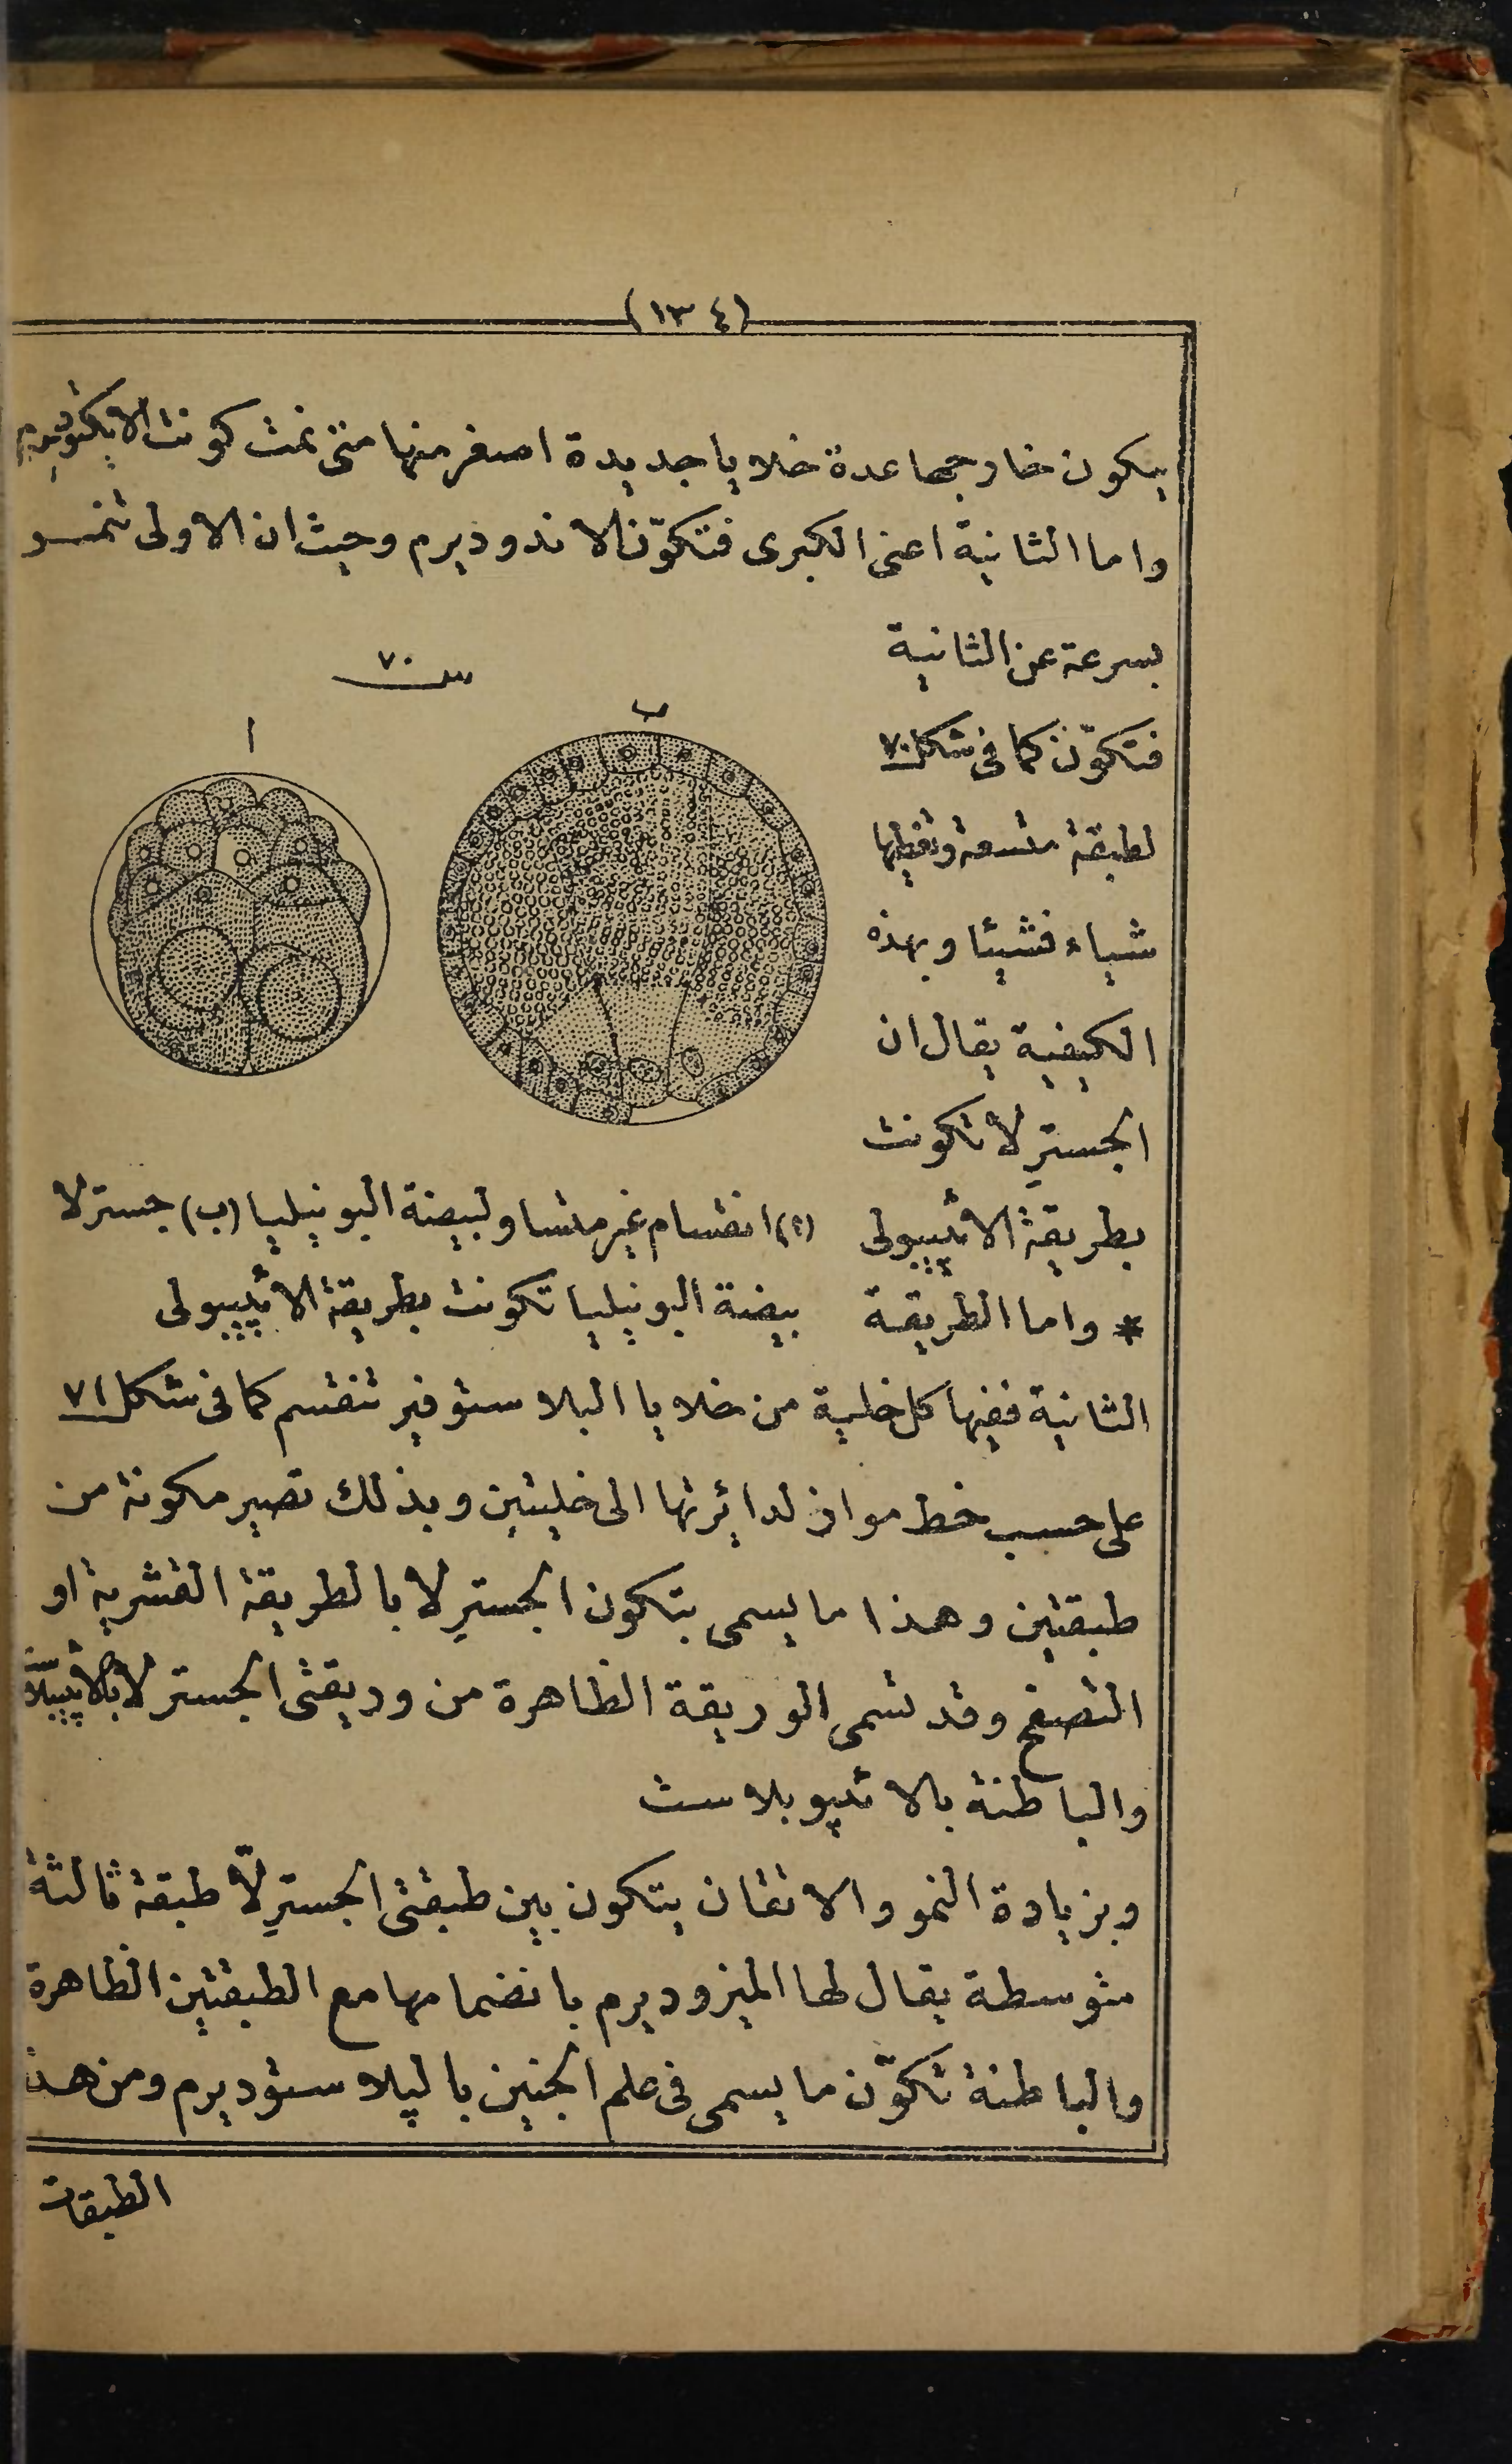 (١٣٤)
يتكون خارجها عدة خلايا جديدة اصغر منها متى نمت كونت الايكتوديرم
واما الثانية اعنى الكبرى فتكوّن الاندوديرم وحيث ان الاولى تنمو
بسرعة عن الثانية
فتكوّن كما فى شكل ٧٠
لطبقة متسعة وتغطيها
شياء فشيئا وبهذه
الكيفية يقال ان
الجسترلا تكونت
بطريقة الائيپيبولى
* واما الطريقة
ش ٧٠
ب
ا
(١) انقسام غير متساو لبيضة البونيليا (ب) جسترلا
بيضة البونيليا تكونت بطريقة الائيپيبولى
الثانية ففيها كل خلية من خلايا البلاستوفير تنقسم كما فى شكل ٧١
على حسب خط مواز لدائرتها الى خليتين وبذلك تصير مكونة من
طبقتين وهذا ما يسمى بتكون الجسترلا بالطريقة القشرية او
التصفح وقد تسمى الوريقة الظاهرة من وريقتى الجسترلا بالائيپيبلاست
والباطنة بالائيپوبلاست
وبزيادة النمو والاتقان يتكون بين طبقتى الجسترلّا طبقة ثالثة
متوسطة يقال لها الميزوديرم بانضمامها مع الطبقتين الظاهرة
والباطنة تكوّن ما يسمى فى علم الجنين بالپلاستوديرم ومن هذه
الطبقات